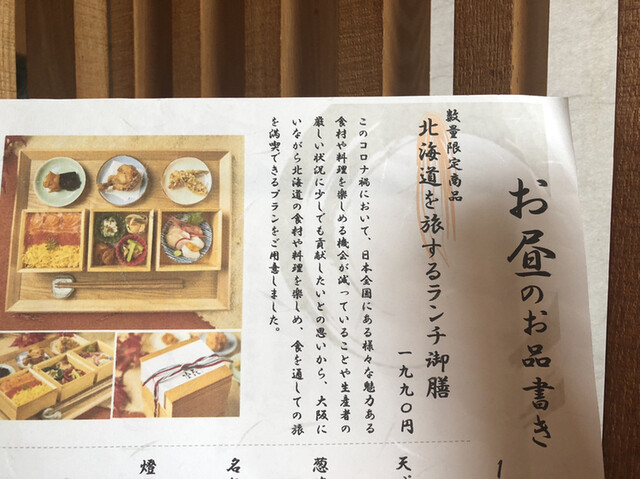 お昼のお品書き
数量限定商品
北海道を旅するランチ御膳
一九九〇円
このコロナ禍において、日本全国にある様々な魅力ある
食材や料理を楽しめる機会が減っていることや生産者の
厳しい状況に少しでも貢献したいとの思いから、大阪に
いながら北海道の食材や料理を楽しめ、食を通しての旅
を満喫できるプランをご用意しました。
天
葱
名
燈